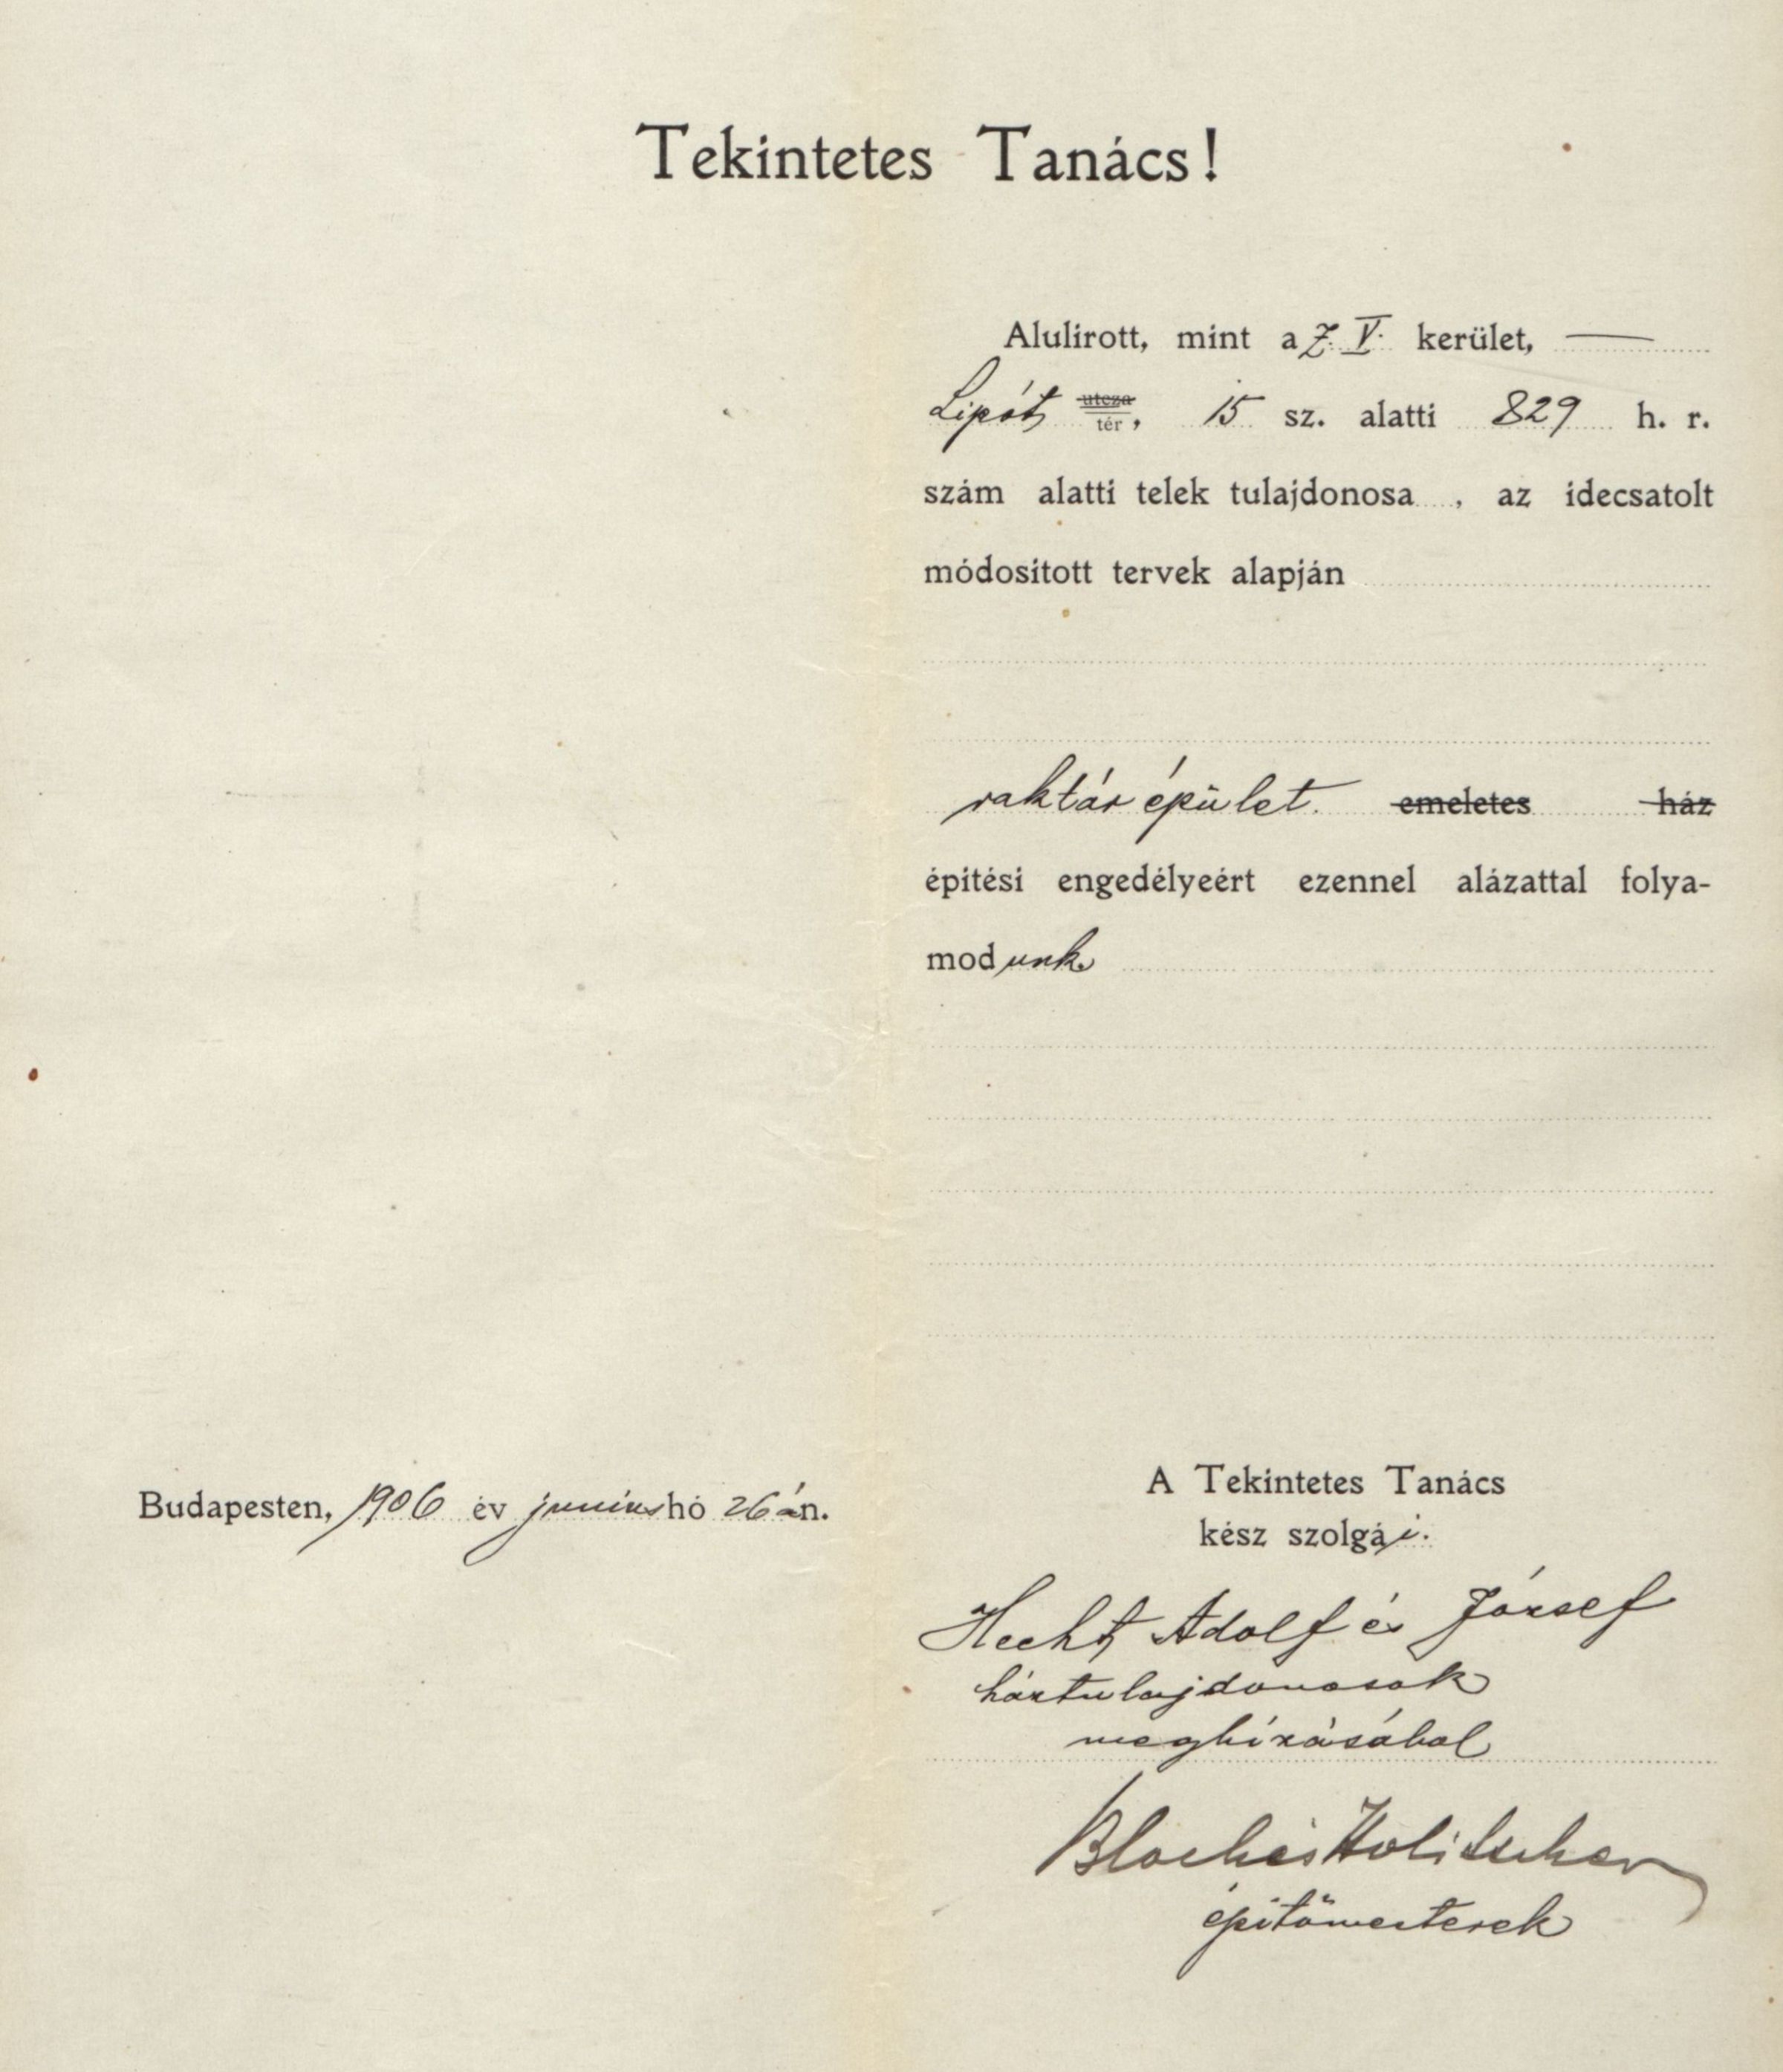 Tekintetes Tanács!
Alulirott, mint a V. kerület,
Lipót utcza tér, 15 sz. alatti 829 h. r.
szám alatti telek tulajdonosa , az idecsatolt
módositott tervek alapján
raktár épület. emeletes ház
épitési engedélyeért ezennel alázattal folya-
modunk
Budapesten, 1906 év junius hó 26án.
A Tekintetes Tanács
kész szolgái.
Hecht Adolf és József
háztulajdonosok
megbizásábol
Bloch és Holitscher
épitőmesterek